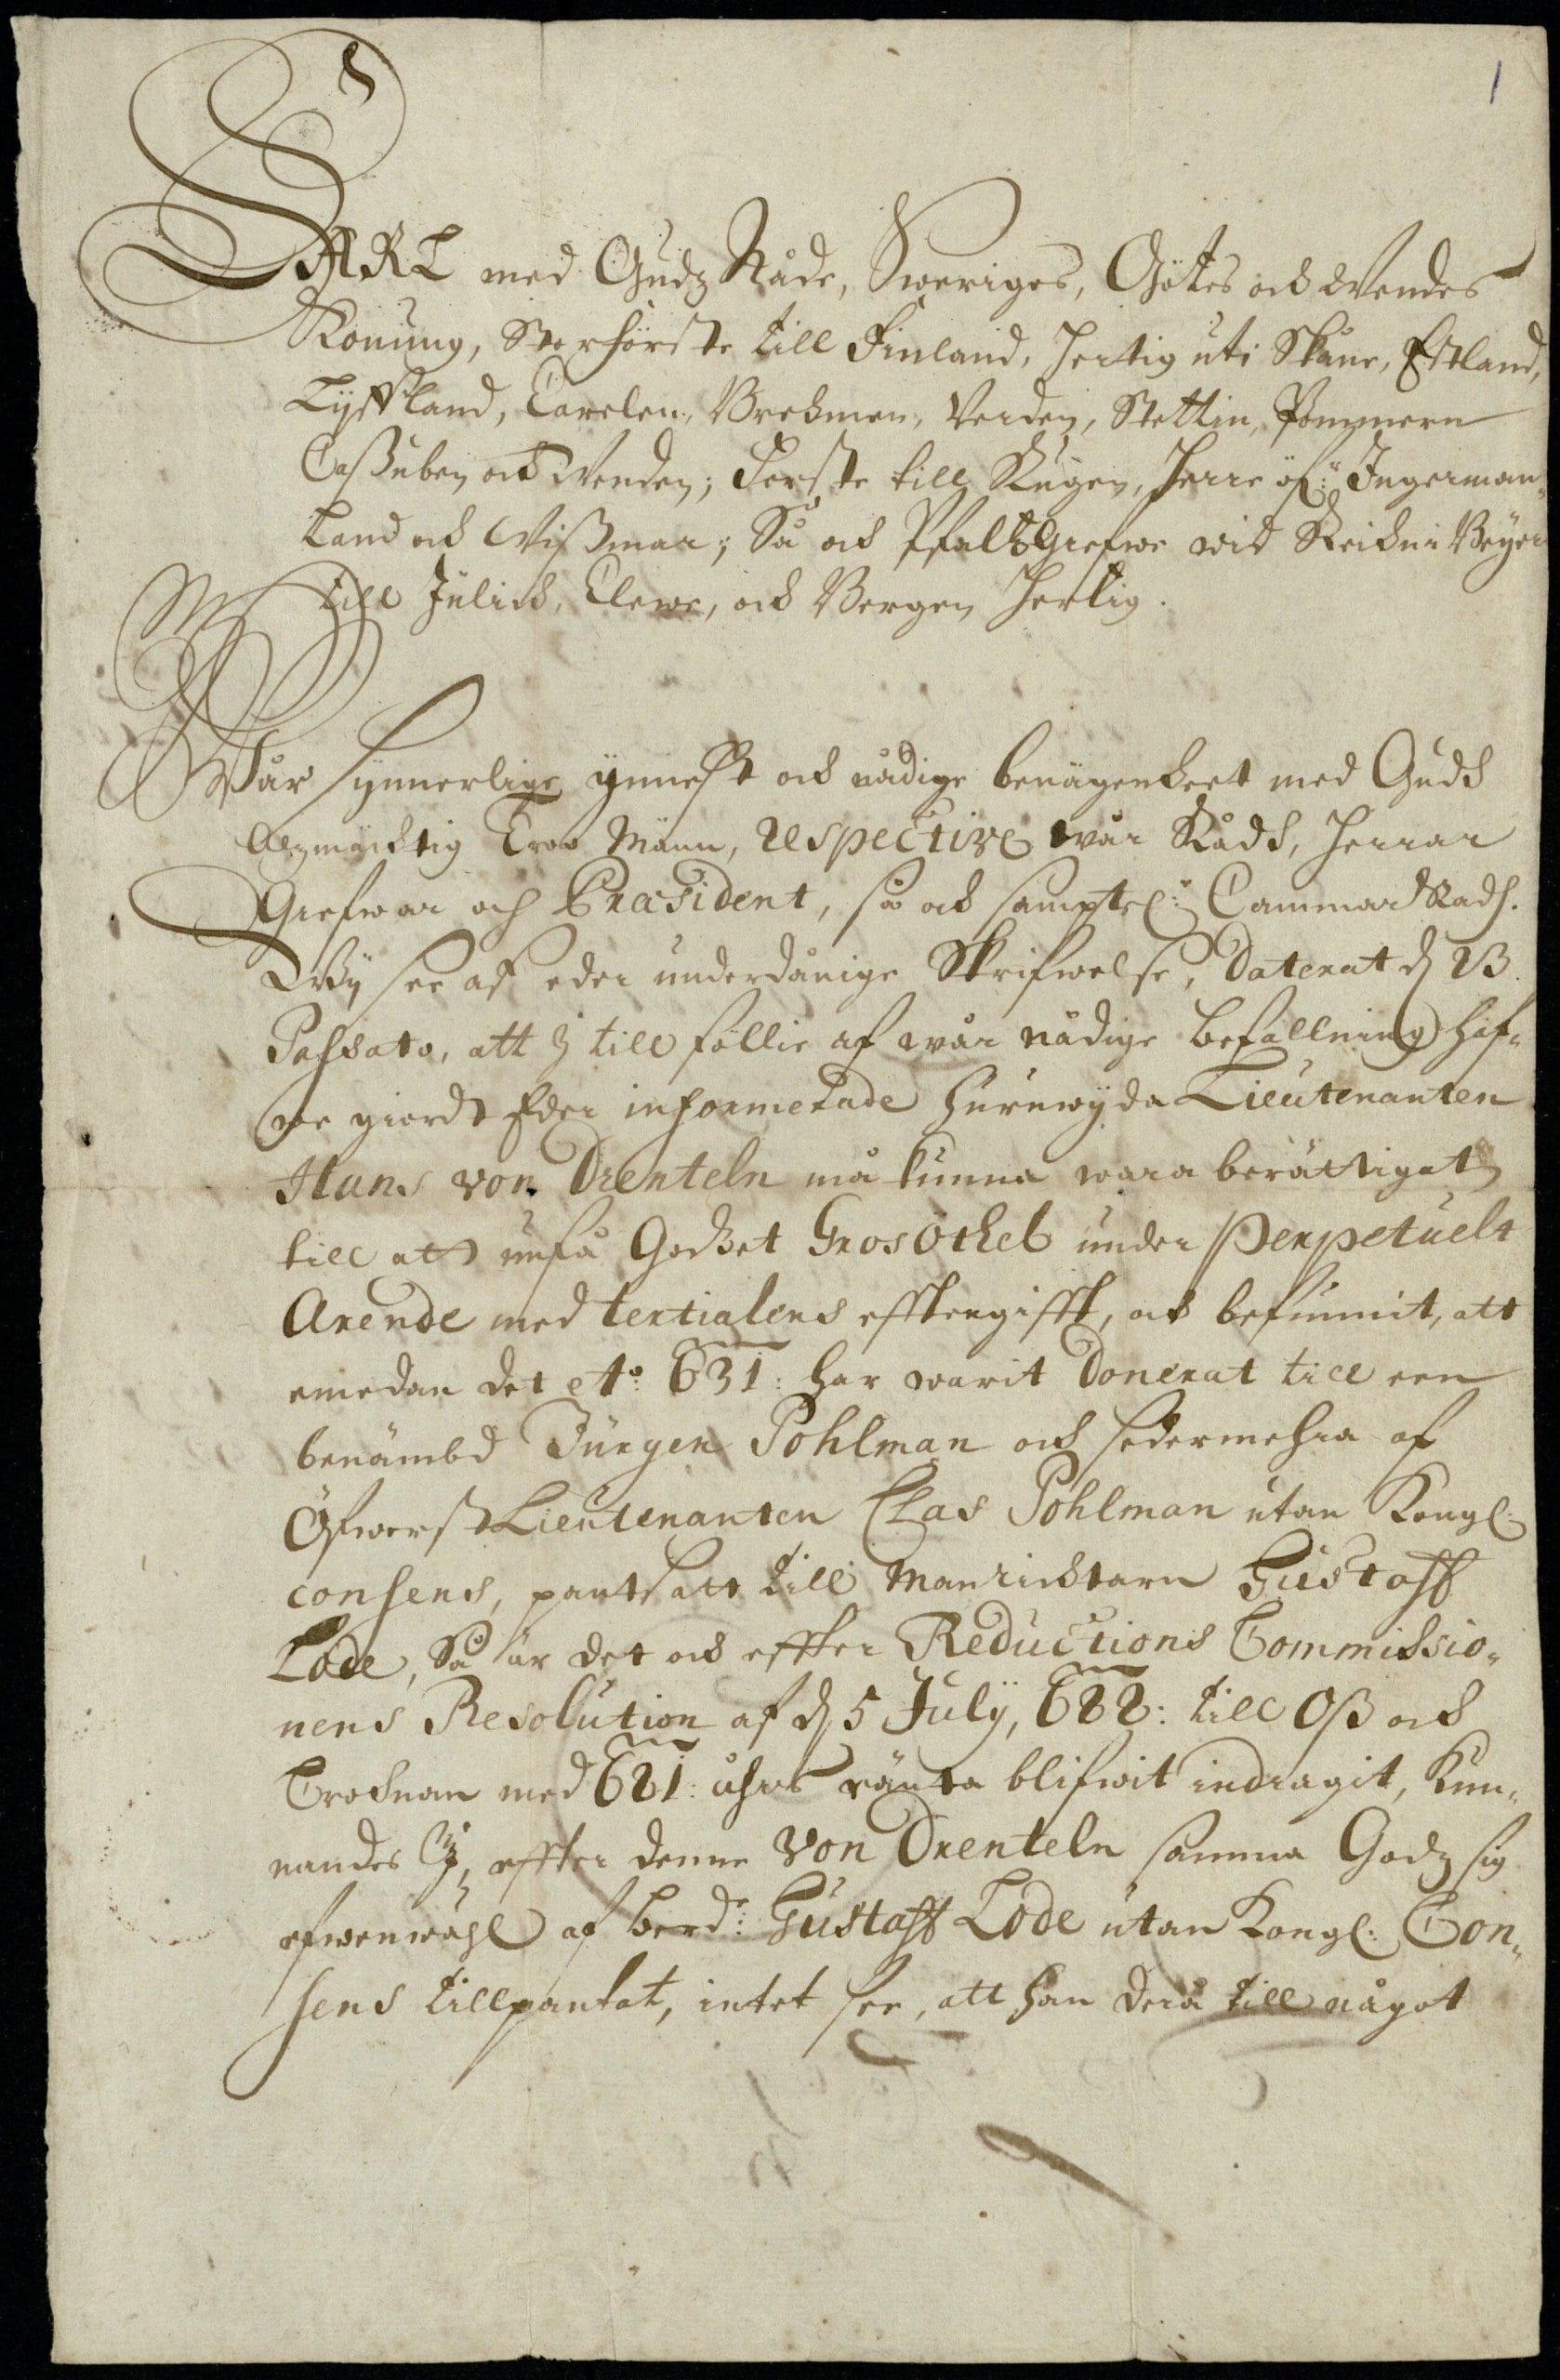 1
CARL med Gudz Nåde, Sweriges, Götes och Wendes
Konung, Storförste till Finland, Hertig uti Skåne, Estland,
Lyffland, Carelen, Brehmen, Verden, Stettin, Pommern
Cassuben och Wenden; Förste till Rügen, Herre öf: Ingerman-
land och Wissmar; Så och Pfaltzgrefwe wid Rhein i Beyern
till Jülich, Clewe, och Bergen Hertig.
Wår synnerlige ynnest och nådige benägenheet med Gudh
Alzmächtig Troo Männ, respective wår Rådh, Herrar
Grefwar och Præsident, så och samptl: Cammar Rådh.
Wij see af eder underdånige Skrifwelse, daterat d 23.
Passato, att J till föllie af wår nådige befallning haf-
we giordt Eder informerade huruwyda Lieutenanten
Hans von Drenteln må kunna wara berättigat
till att unfå Godzet Gros Othel under Perpetuelt
Arende med tertialens efftergifft, och befunnit, att
emedan det A:o 631: har warit donerat till een
benämbd Jürgen Pohlman och sedermehra af
Öfwerst Lieutenanten Clas Pohlman utan Kongl:
consens, pantsatt till Manrichtarn Gustaff
Lode, Så är det och effter Reductions Commissio-
nens Resolution af d 5 July, 688: till Oss och
Crohnan med 681: åhrs ränta blifwit indragit, Kun-
nandes J, effter denne von Drenteln samma Godz sig
efwenwähl af berd:e Gustaff Lode utan Kongl: Con-
sens tillpantat, intet see, att han derå till något